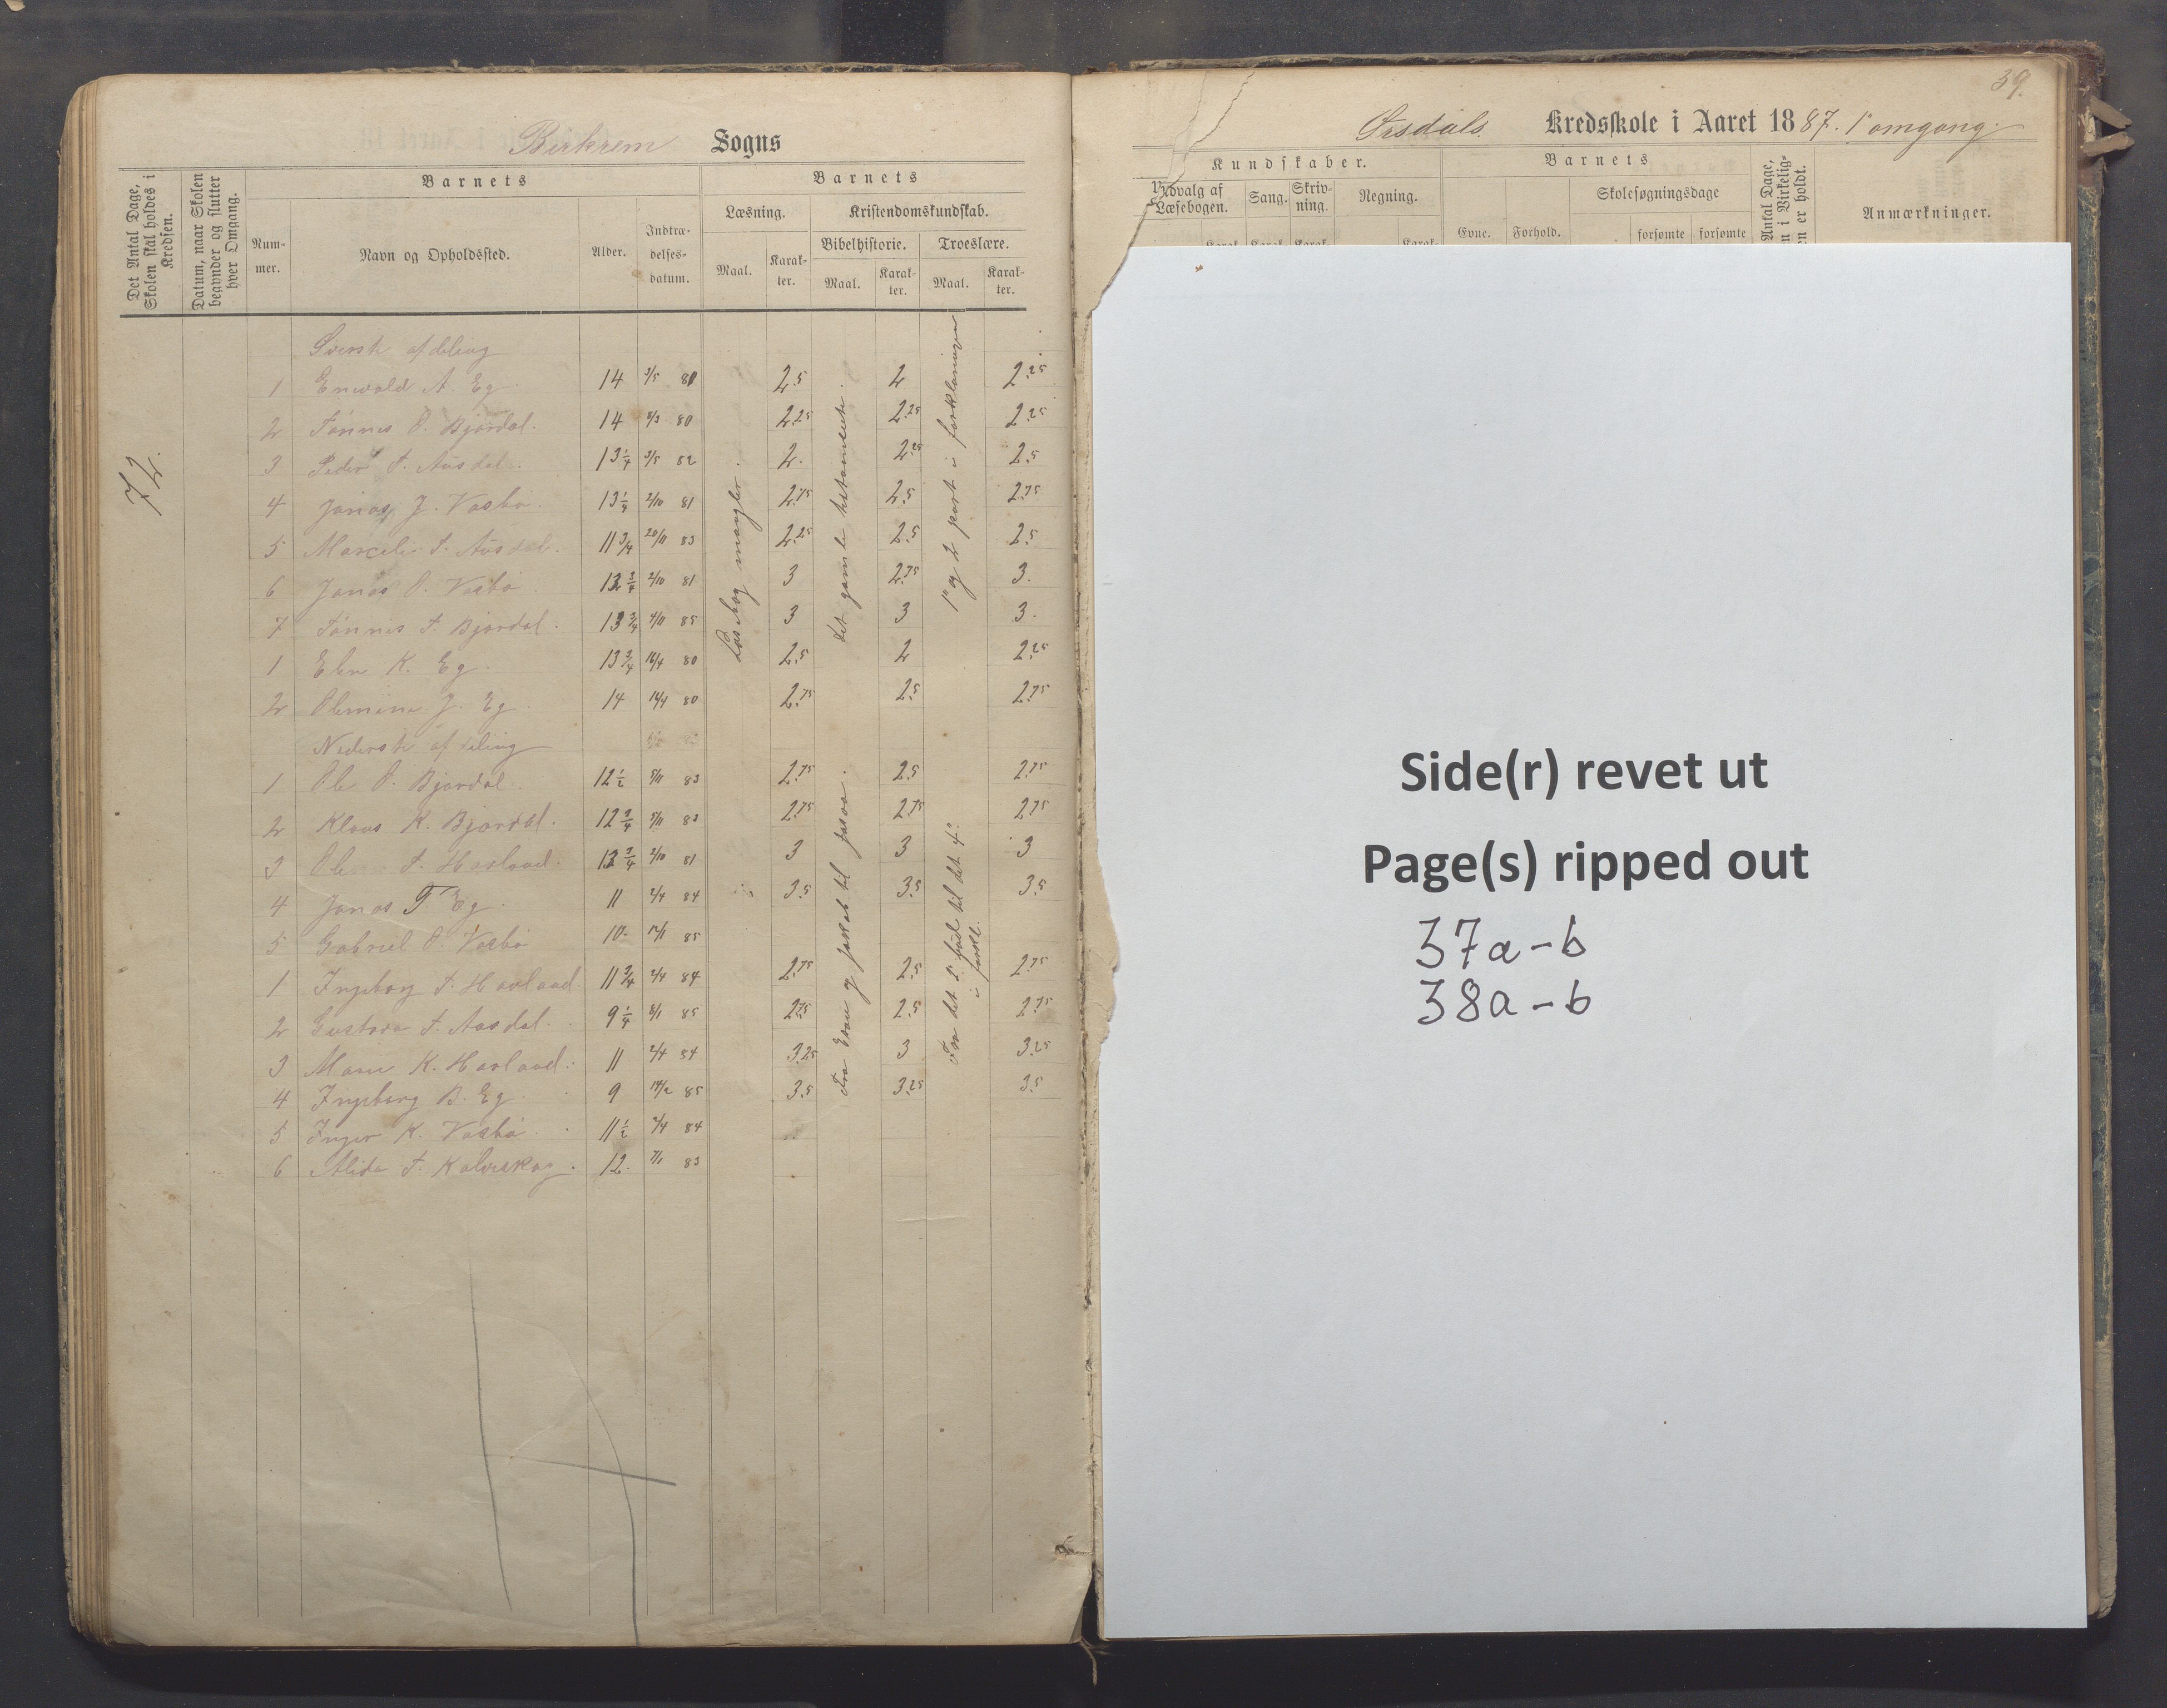 Birkrem Sogns
Det Antal Dage, Skolen skal holdes i Kredsen.
Datum, naar Skolen begynder og slutter hver Omgang.
Barnets
Barnets
Num-
mer.
Navn og Opholdssted.
Alder.
Indtræ-
delses-
datum.
Læsning.
Kristendomskundskab.
Bibelhistorie.
Troeslære.
Maal.
Karak-
ter.
Maal.
Karak-
ter.
Maal.
Karak-
ter.
72.
Øverste afdeling
1 Enevald A. Eg 14 3/5 80 2.5 2 2.25
2 Tønnes O. Bjordal. 14 2/3 80 2.25 2.25 2.25
3 Peder T. Ausdal. 13 1/4 3/5 82 2. 2.25 2.5
4 Jonas J. Vasbø. 13 1/4 2/10 81 2.75 2.5 2.75
5 T. Ausdal. 11 3/4 20/11 83 2.25 2.5 2.5
6 Jonas O. Vasbø 2/10 81 3 2.75 3.
7 Tønnes T. Bjordal. 85 3 3 3.
1 K. Eg. 13 3/4 80 2.5 2 2.25
2 Olemine J. Eg. 14 80 2.75 2.5 2.75
Læsebog mangler.
det gamle testamente.
1° og 2 part i forklaringen
Nederste afdeling
1 Ole O. Bjordal. 12 1/2 5/11 83 2.75 2.5 2.75
2 Klaus K. Bjordal. 12 3/4 5/11 83 2.75 2.75 2.75
3 Ole T. Hovland. 2/10 81 3 3 3
4 Jonas T. Eg. 11 2/4 84 3.5 3.5 3.5
5 Gabriel O. Vasbø 10 85
1 Ingeborg T. Hovland 11 3/4 2/4 84 2.75 2.5 2.75
2 Gustava T. Ausdal. 9 1/4 85 2.75 2.5 2.75
3 Maria K. Hovland. 11 2/4 84 3.25 3 3.25
4 Ingeborg B. Eg. 9 85 3.5 3.25 3.5
5 Inger K. Vasbø. 11 1/2 2/4 84
6 Alida T. Kalveskog. 12. 83
Fra Esau og Jakob til
Fra det til det 4°
i forkl.
39.
Ørsdals Kredsskole i Aaret 1887. 1° omgang.
Kundskaber.
Barnets
Udvalg af
Læsebogen.
Sang.
Skriv-
ning.
Regning.
Evne.
Forhold.
Skolesøgningsdage
forsømte
forsømte
Antal Dage,
n i Virkelig-
en er holdt.
Anmærkninger.
Karak-
Karak-
Karak-
Karak-
Side(r) revet ut
Page(s) ripped out
37a-b
38a-b